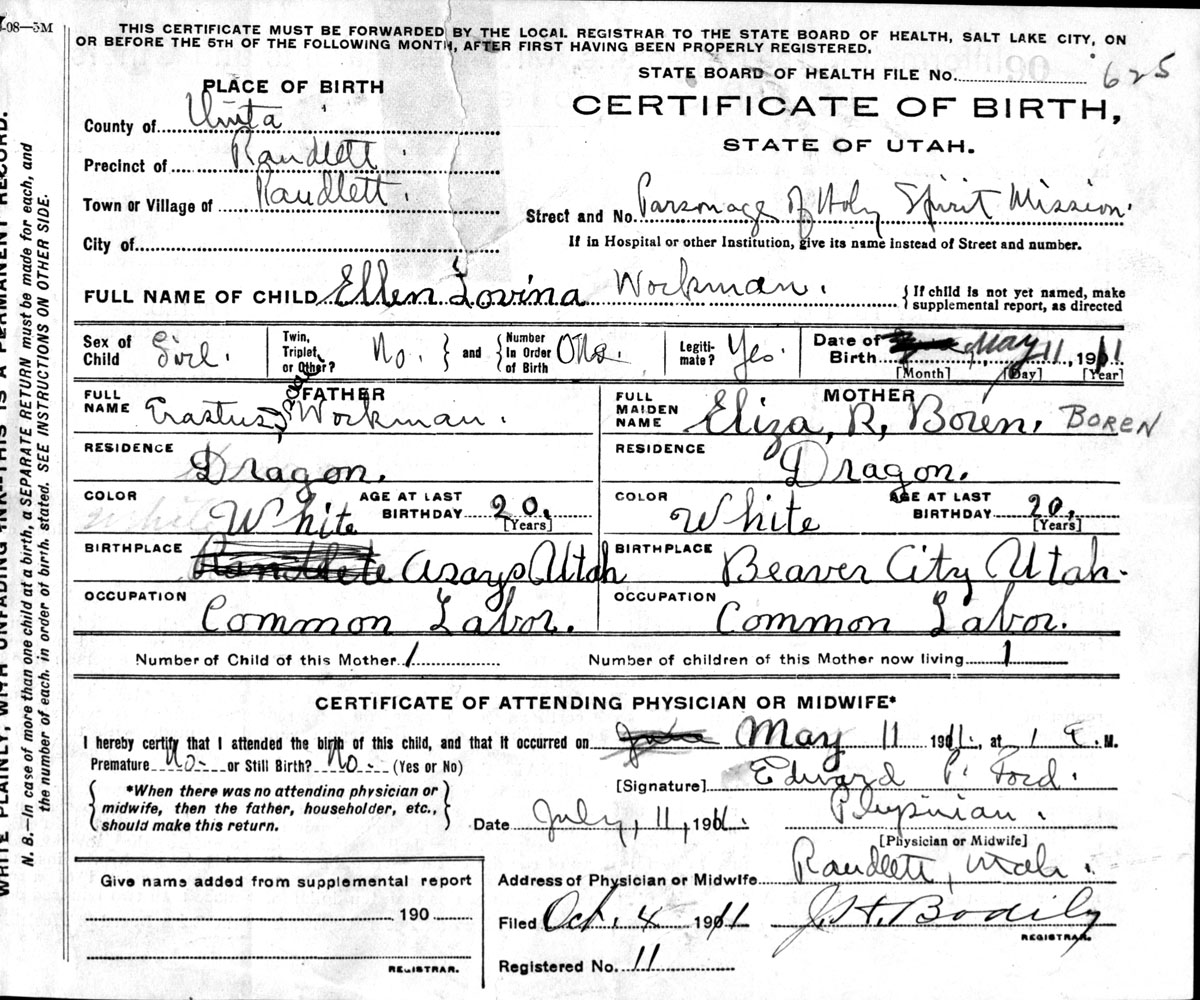 1-08—5M
THIS CERTIFICATE MUST BE FORWARDED BY THE LOCAL REGISTRAR TO THE STATE BOARD OF HEALTH, SALT LAKE CITY, ON
OR BEFORE THE 5TH OF THE FOLLOWING MONTH, AFTER FIRST HAVING BEEN PROPERLY REGISTERED.
STATE BOARD OF HEALTH FILE No. 625
PLACE OF BIRTH
CERTIFICATE OF BIRTH,
STATE OF UTAH.
County of Uinta
Precinct of Randlett.
Town or Village of Randlett.
Street and No. Parsonage of Holy Spirit Mission.
City of
If in Hospital or other Institution, give its name instead of Street and number.
FULL NAME OF CHILD Ellen Lovina Workman. {If child is not yet named, make
supplemental report, as directed
Sex of Child Girl. Twin, Triplet, or Other? No. } and { Number In Order of Birth One. Legiti-mate? Yes. Date of Birth May 11, 1911
[Month] [Day] [Year]
FATHER
FULL NAME Erastus Workman.
MOTHER
FULL MAIDEN NAME Eliza, R, Boren. BOREN
RESIDENCE Dragon.
RESIDENCE Dragon.
COLOR White AGE AT LAST BIRTHDAY 20. [Years]
COLOR White AGE AT LAST BIRTHDAY 20, [Years]
BIRTHPLACE Randlete Asays Utah
BIRTHPLACE Beaver City Utah.
OCCUPATION Common Labor.
OCCUPATION Common Labor.
Number of Child of this Mother 1
Number of children of this Mother now living 1
CERTIFICATE OF ATTENDING PHYSICIAN OR MIDWIFE*
I hereby certify that I attended the birth of this child, and that it occurred on May 11 1911., at 1 P. M.
Premature No. or Still Birth? No. (Yes or No)
[Signature] Edward P. Ford.
{ *When there was no attending physician or
midwife, then the father, householder, etc.,
should make this return. }
Date July, 11, 1911. Physician.
[Physician or Midwife]
Address of Physician or Midwife Randlett, Utah.
Give name added from supplemental report
190
REGISTRAR.
Filed Oct. 4 1911 J. H. Bodily
REGISTRAR.
Registered No. 11
WRITE PLAINLY, WITH UNFADING INK—THIS IS A PERMANENT RECORD.
N. B.—In case of more than one child at a birth, a SEPARATE RETURN must be made for each, and
the number of each, in order of birth, stated. SEE INSTRUCTIONS ON OTHER SIDE.